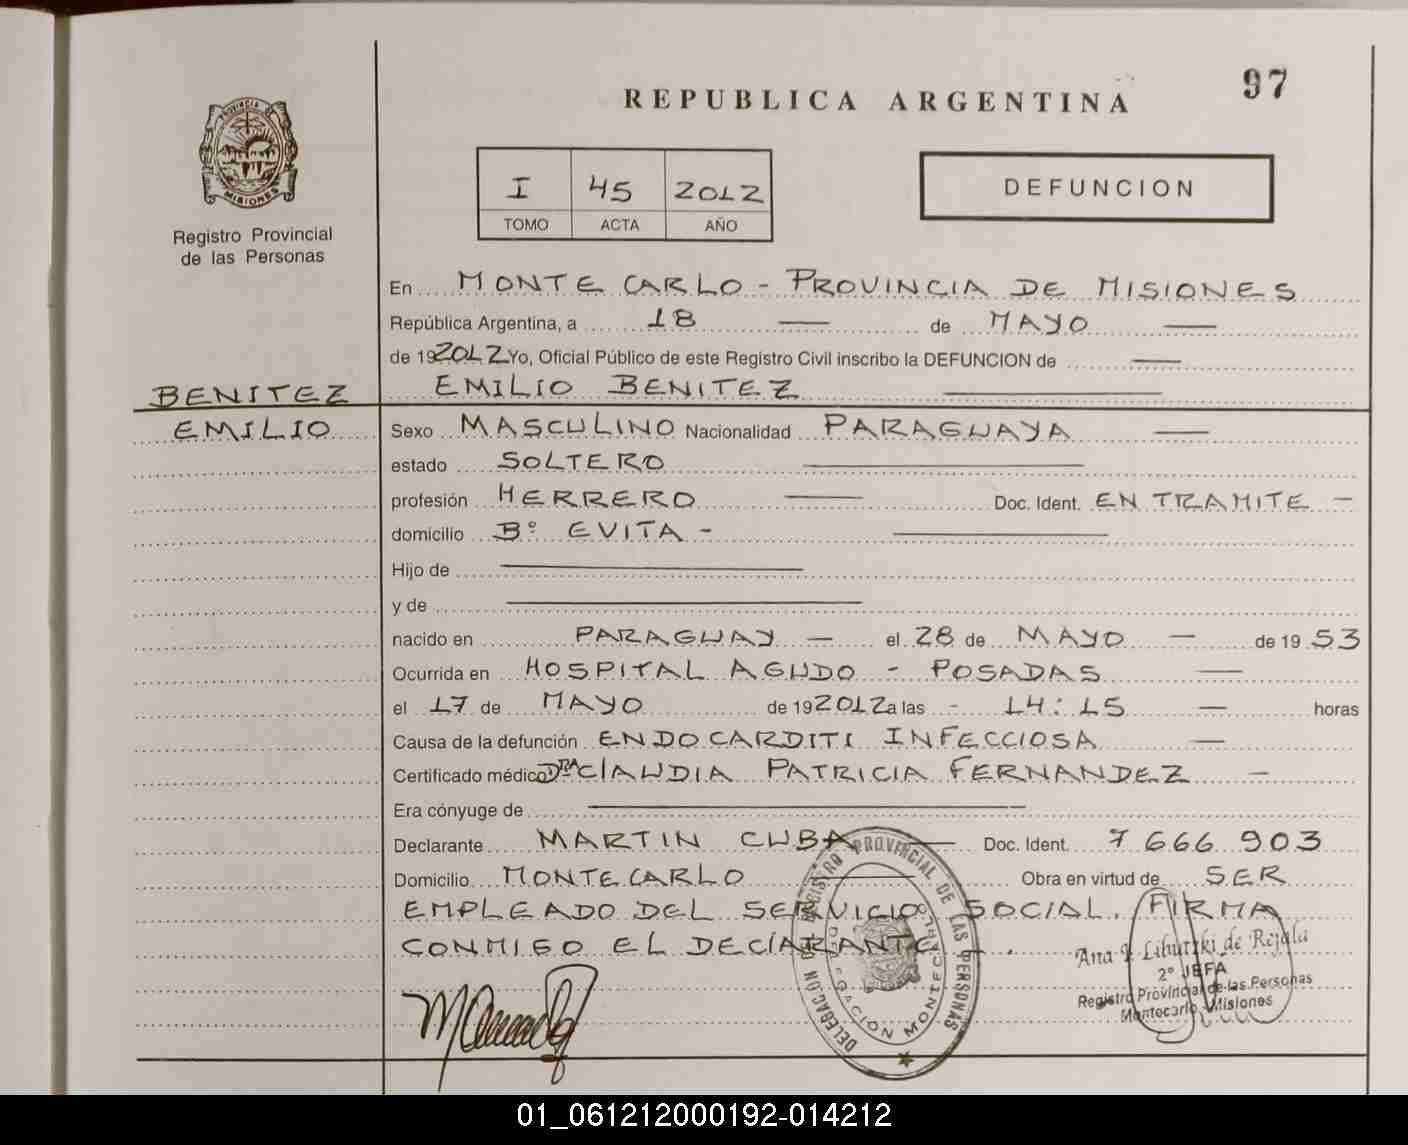 97
REPUBLICA ARGENTINA
PROVINCIA DE
MISIONES
Registro Provincial
de las Personas
I 45 2012
TOMO ACTA AÑO
DEFUNCION
En MONTE CARLO - PROVINCIA DE MISIONES
República Argentina, a 18 de MAYO
de 192012 Yo, Oficial Público de este Registro Civil inscribo la DEFUNCION de
BENITEZ
EMILIO
EMILIO BENITEZ
Sexo MASCULINO Nacionalidad PARAGUAYA
estado SOLTERO
profesión HERRERO Doc. Ident. EN TRAMITE -
domicilio Bº EVITA -
Hijo de
y de
nacido en PARAGUAY - el 28 de MAYO - de 19 53
Ocurrida en HOSPITAL AGUDO - POSADAS
el 17 de MAYO de 192012 a las - 14:15 - horas
Causa de la defunción ENDOCARDITI INFECCIOSA -
Certificado médico DRA ClAUDIA PATRICIA FERNANDEZ -
Era cónyuge de
Declarante MARTIN CUBA Doc. Ident. 7 666 903
Domicilio MONTECARLO Obra en virtud de SER
EMPLEADO DEL SERVICIO SOCIAL. FIRMA
CONMIGO EL DEClARANTE
DELEGACION DEL REGISTRO PROVINCIAL DE LAS PERSONAS
DELEGACION MONTECARLO
Ana Lihutzki de Rejala
2° JEFA
Registro Provincial de las Personas
Montecarlo - Misiones
01_061212000192-014212